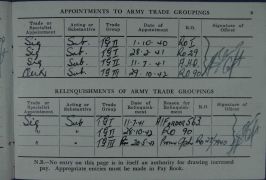 APPOINTMENTS TO ARMY TRADE GROUPINGS
Trade or Specialist Appointment Acting or Substantive Trade Group Date of Appointment R.O. Signature of Officer
Sig Sub. TG II 1-10-40 RO I
Sig Sub TG II 28-2-41 RO 29
Sig Sub. TG II 11-7-41
Sub TG III 29-10-42 RO 90
RELINQUISHMENTS OF ARMY TRADE GROUPINGS
Trade or Specialist Appointment Acting or Substantive Trade Group Date of Relinquishment Reason for Relinquishment R.O. Signature of Officer
Sig Sub TG I 11-7-41
" " TG II 28-10-42 RO 90
" " TG III
N.B.—No entry on this page is in itself an authority for drawing increased
pay. Appropriate entries must be made in Pay Book.